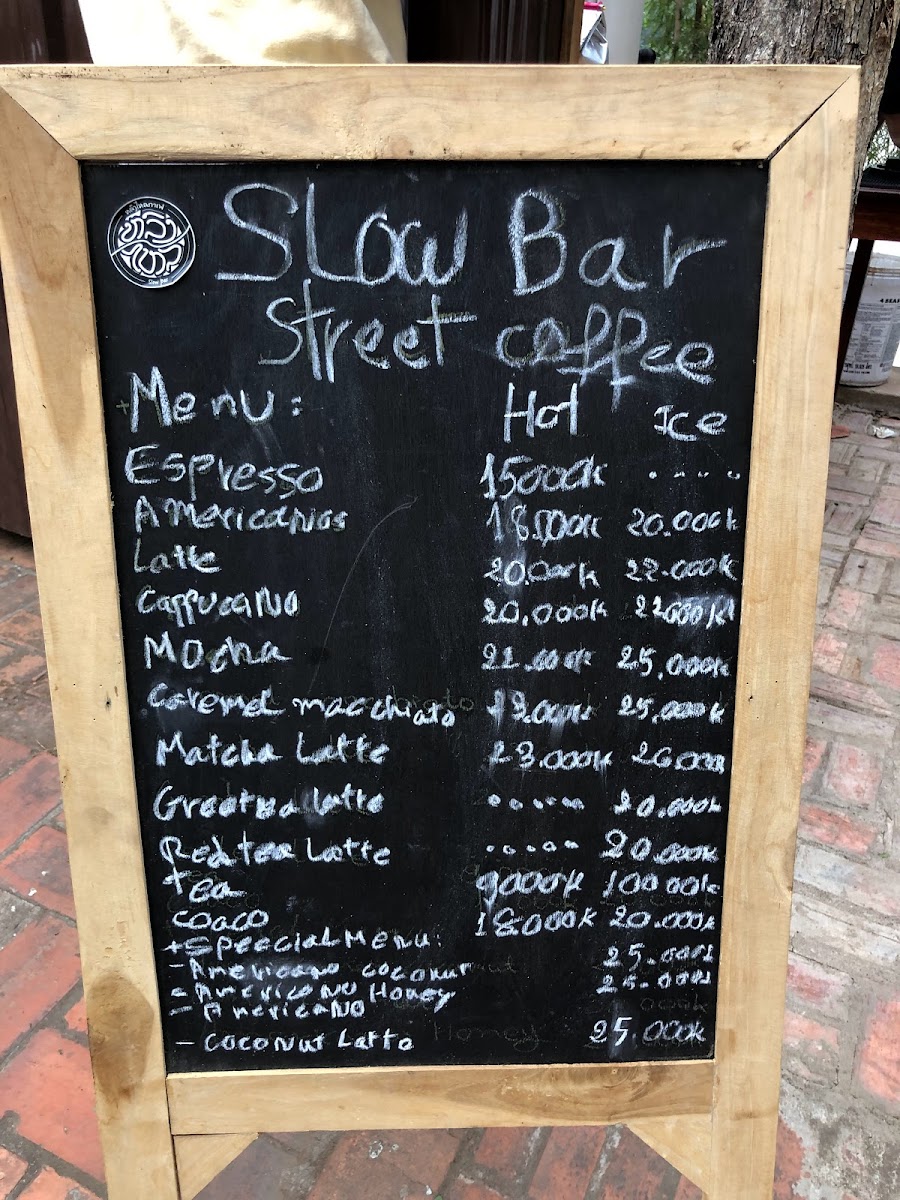 Slow Bar
Street coffee
+Menu: Hot Ice
Espresso 15000k .....
Americanios 18.000k 20.000k
Latte 20.000k 22.000k
Cappucano 20.000k 22000k
Mocha 22.000k 25.000k
Caramel macchiato 23.000k 25.000k
Matcha Latte 23.000k 26.000k
Greatea latte ..... 20.000k
Redtea Latte ..... 20.000k
Tea 9000k 10000k
Coaco 18000k 20.000k
+Speecial Menu:
- Americano coconut 25.000k
- Americano Honey 25.000k
- Americano
- Coconut Latto 25.000k
Slow Bar
4 SEA